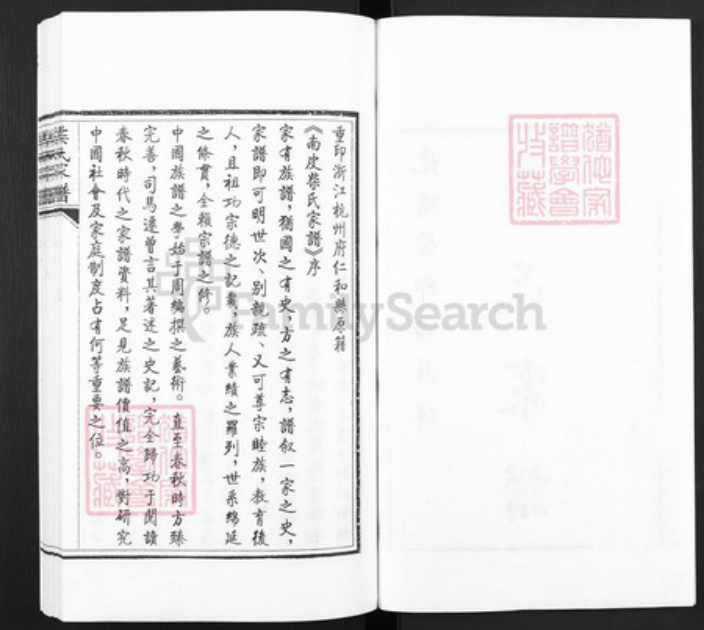 重印浙江杭州府仁和縣原籍
《南皮柴氏家譜》序
家有族譜，猶國之有史，方之有志，譜叙一家之史，
家譜即可明世次、別親疏、又可尊宗睦族，教育後
人，且祖功宗德之記載，族人業績之羅列，世系綿延
之條貫，全賴宗譜之修。
中國族譜之學始于周編撰之藝術。直至春秋時方臻
完善，司馬遷曾言其著述之史記，完全歸功于閱讀
春秋時代之家譜資料，足見族譜價值之高，對研究
中國社會及家庭制度占有何等重要之位。
氏家譜
猶他家
譜學會
收藏
猶他家
譜學會
收藏
FamilySearch